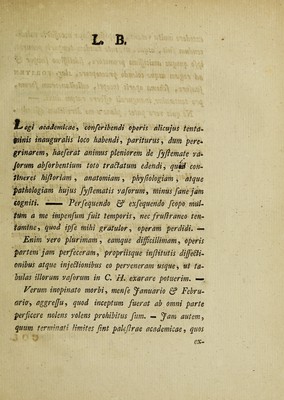 L. B.
Legi academicae, conscribendi operis alicujus tenta-
minis inauguralis loco habendi, pariturus, dum pere-
grinarem, haeserat animus pleniorem de systemate va-
sorum absorbentium toto tractatum edendi, quid con-
tineret historiam, anatomiam, physiologiam, atque
pathologiam hujus systematis vasorum, minus sane jam
cogniti. —— Persequendo & exsequendo scopo mul-
tum a me impensum fuit temporis, nec frustraneo ten-
tamine, quod ipse mihi gratulor, operam perdidi. —
Enim vero plurimam, eamque difficillimam, operis
partem jam perfeceram, propriisque institutis dissecti-
onibus atque injectionibus eo perveneram usque, ut ta-
bulas illorum vasorum in C. H. exarare potuerim. —
Verum inopinato morbi, mense Januario & Febru-
ario, aggressu, quod inceptum fuerat ab omni parte
perficere nolens volens prohibitus sum. — Jam autem,
quum terminati limites sint palestrae academicae, quos
ex-